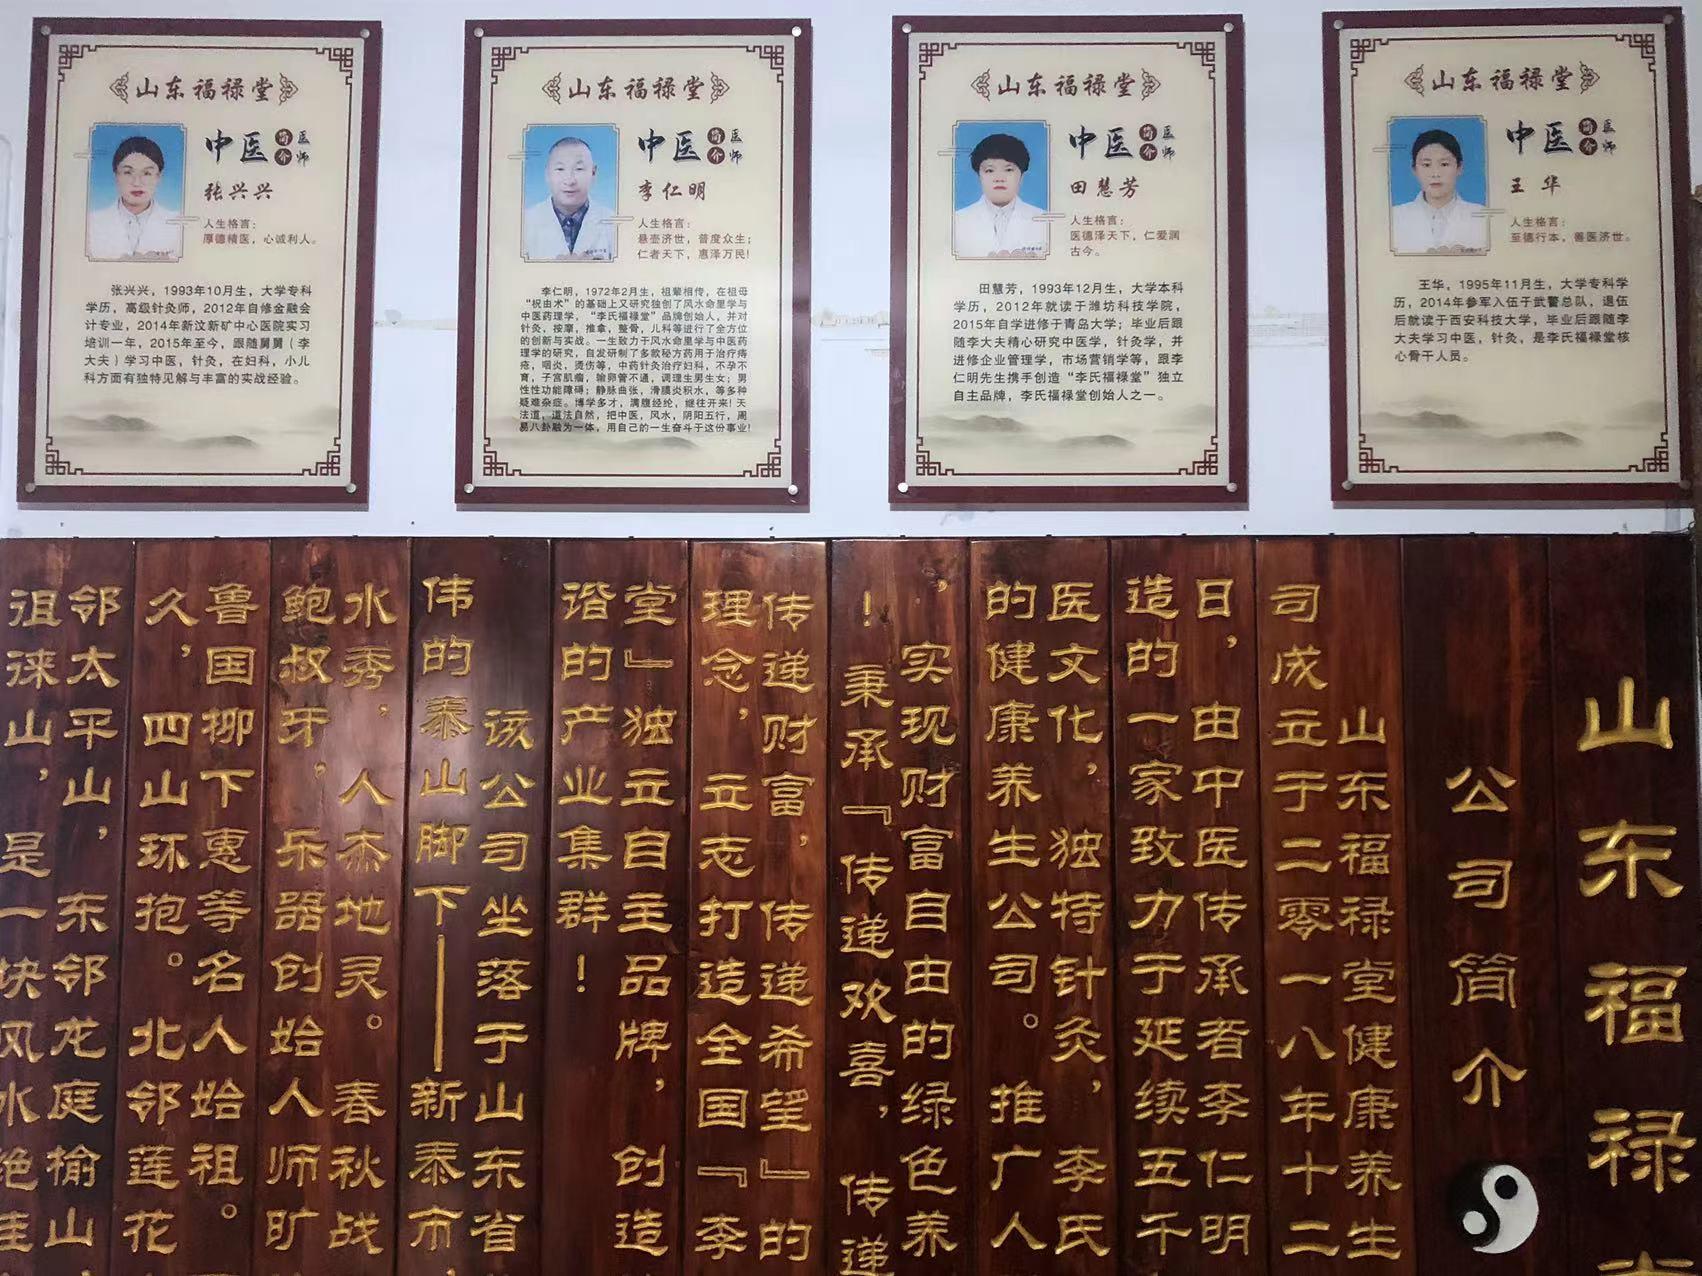 山东福禄堂
中医简介医师
张兴兴
人生格言：
厚德精医，心诚利人。
张兴兴，1993年10月生，大学专科
学历，高级针灸师，2012年自修金融会
计专业，2014年新汶新矿中心医院实习
培训一年，2015年至今，跟随舅舅（李
大夫）学习中医，针灸，在妇科，小儿
科方面有独特见解与丰富的实战经验。
山东福禄堂
中医简介医师
李仁明
人生格言：
悬壶济世，普度众生；
仁者天下，惠泽万民！
李仁明，1972年2月生，祖辈相传，在祖母
“祝由术”的基础上又研究独创了风水命里学与
中医药理学，“李氏福禄堂”品牌创始人，并对
针灸，按摩，推拿，整骨，儿科等进行了全方位
的创新与实战。一生致力于风水命里学与中医药
理学的研究，自发研制了多款秘方药用于治疗痔
疮，咽炎，烫伤等，中药针灸治疗妇科，不孕不
育，子宫肌瘤，输卵管不通，调理生男生女；男
性性功能障碍；静脉曲张，滑膜炎积水，等多种
疑难杂症。博学多才，满腹经纶，继往开来！天
法道，道法自然，把中医，风水，阴阳五行，周
易八卦融为一体，用自己的一生奋斗于这份事业！
山东福禄堂
中医简介医师
田慧芳
人生格言：
医德泽天下，仁爱润
古今。
田慧芳，1993年12月生，大学本科
学历，2012年就读于潍坊科技学院，
2015年自学进修于青岛大学；毕业后跟
随李大夫精心研究中医学，针灸学，并
进修企业管理学，市场营销学等，跟李
仁明先生携手创造“李氏福禄堂”独立
自主品牌，李氏福禄堂创始人之一。
山东福禄堂
中医简介医师
王华
人生格言：
至德行本，善医济世。
王华，1995年11月生，大学专科学
历，2014年参军入伍于武警总队，退伍
后就读于西安科技大学，毕业后跟随李
大夫学习中医，针灸，是李氏福禄堂核
心骨干人员。
山东福禄
公司简介
山东福禄堂健康养生
司成立于二零一八年十二
日，由中医传承者李仁明
造的一家致力于延续五千
医文化，独特针灸，李氏
的健康养生公司。推广人
，实现财富自由的绿色养
！秉承『传递欢喜，传递
传递财富，传递希望』的
理念，立志打造全国『李
堂』独立自主品牌，创造
谐的产业集群！
该公司坐落于山东省
伟的泰山脚下——新泰市，
水秀，人杰地灵。春秋战
鲍叔牙，乐器创始人师旷
鲁国柳下惠等名人始祖。
久，四山环抱。北邻莲花
邻太平山，东邻龙庭榆山
徂徕山，是一块风水绝佳